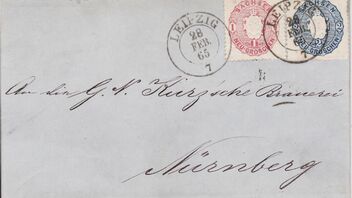 LEIPZIG
28
FEB
65
7
SACHSEN
1
NEU-GROSCHEN
LEIPZIG
28
FEB
7
SACHSEN
NEU-GROSCHEN
An die G. N. Kurz'sche Brauerei
Nürnberg